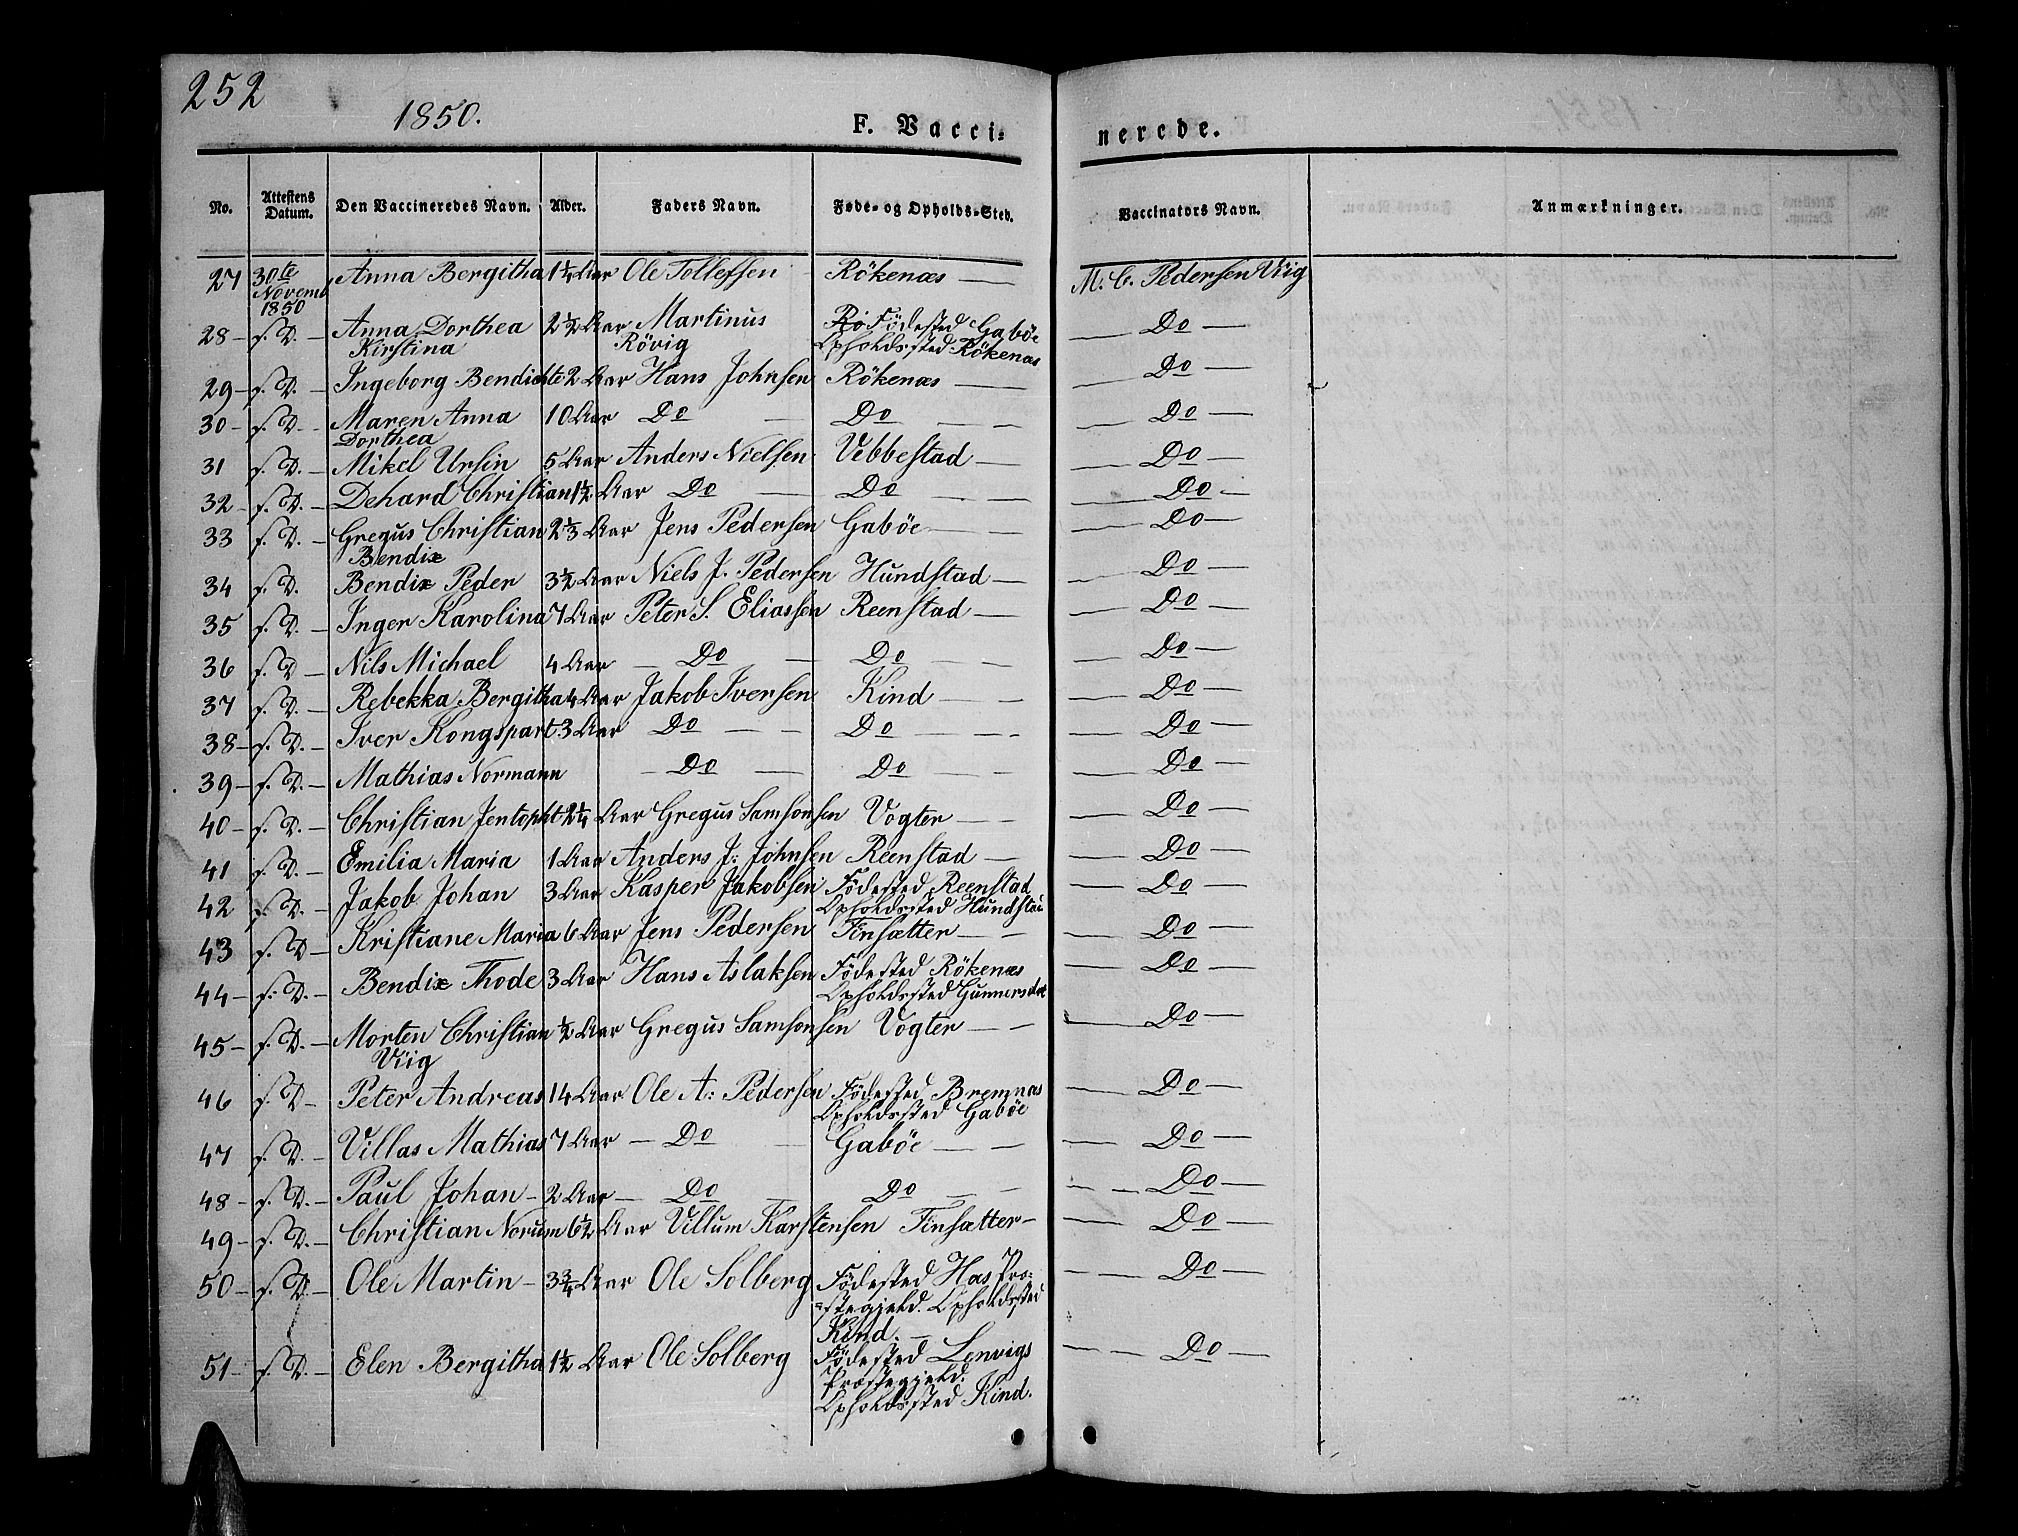 252
1850.
F. Vacci-
nerede.
No. Attestens Datum. Den Vaccineredes Navn. Alder. Faders Navn. Føde- og Opholds-Sted. Vaccinators Navn. Anmærkninger.
27 30te Novemb 1850 Anna Bergitha 1 1/4 Aar Ole Tolleffsen Rökenæs — M. C. Pedersen Viig
28 — f. D. — Anna Dorthea Kirstina 2 1/2 Aar Martinus Rövig Födested Gaböe Opholdssted Rökenæs — Do —
29 — f. D. — Ingeborg Bendichte 2 Aar Hans Johnsen Rökenæs — — Do —
30 — f. D. — Maren Anna Dorthea 10 Aar Do — Do — — Do —
31 f. D. — Mikel Ursin 5 Aar Anders Nielsen Vebbestad — — Do —
32 — f. D. — Dehard Christian 1 1/2 Aar Do — Do — — Do —
33 f. D. — Gregus Christian Bendix 2 1/3 Aar Jens Pedersen Gaböe — — Do —
34 f. D. Bendix Peder 3 1/2 Aar Niels J. Pedersen Hundstad — — Do —
35 f. D. — Inger Karolina 7 Aar Peter S. Eliassen Reenstad — — Do —
36 f. D — Nils Michael 4 Aar — Do — Do — — Do —
37 f. D. — Rebekka Bergitha 4 Aar Jakob Iversen Kind — — Do —
38 — f. D. — Iver Kongspart 3 Aar Do — — Do — — Do —
39 — f. D. — Mathias Normann — Do — Do — — Do —
40 — f. D. — Christian Jentopht 2 1/4 Aar Gregus Samsonsen Vogter — — Do —
41 f. D. — Emilia Maria 1 Aar Anders J. Johnsen Reenstad — — Do —
42 f. D. — Jakob Johan 3 Aar Kasper Jakobsen Födested Reenstad Opholdssted Hundstad — Do —
43 f. D — Kristiane Maria 6 Aar Jens Pedersen Finsætter — — Do —
44 — f. D. — Bendix Thode 3 Aar Hans Aslaksen Födested Rökenæs Opholdssted — Do —
45 — f. D. — Morten Christian Viig 1/2 Aar Gregus Samsonsen Vogter — — Do —
46 f. D — Peter Andreas 14 Aar Ole A: Pedersen Födested Bremnæs Opholdssted Gaböe — Do —
47 f. D. — Villas Mathias 7 Aar — Do — Gaböe — — Do —
48 — f. D. — Paul Johan — 2 Aar — Do — Do — — Do —
49 — f. D. — Christian Norum 6 1/2 Aar Villum Karstensen Finsætter — — Do —
50 — f. D. — Ole Martin — 3 3/4 Aar Ole Solberg Födested Has Præ=
=stegjeld. Opholdssted
Kind. — — Do —
51 — f. D. — Elen Bergitha 1 1/2 Aar Ole Solberg Födested Lenvigs
Præstegjeld.
Opholdssted Kind. — Do —